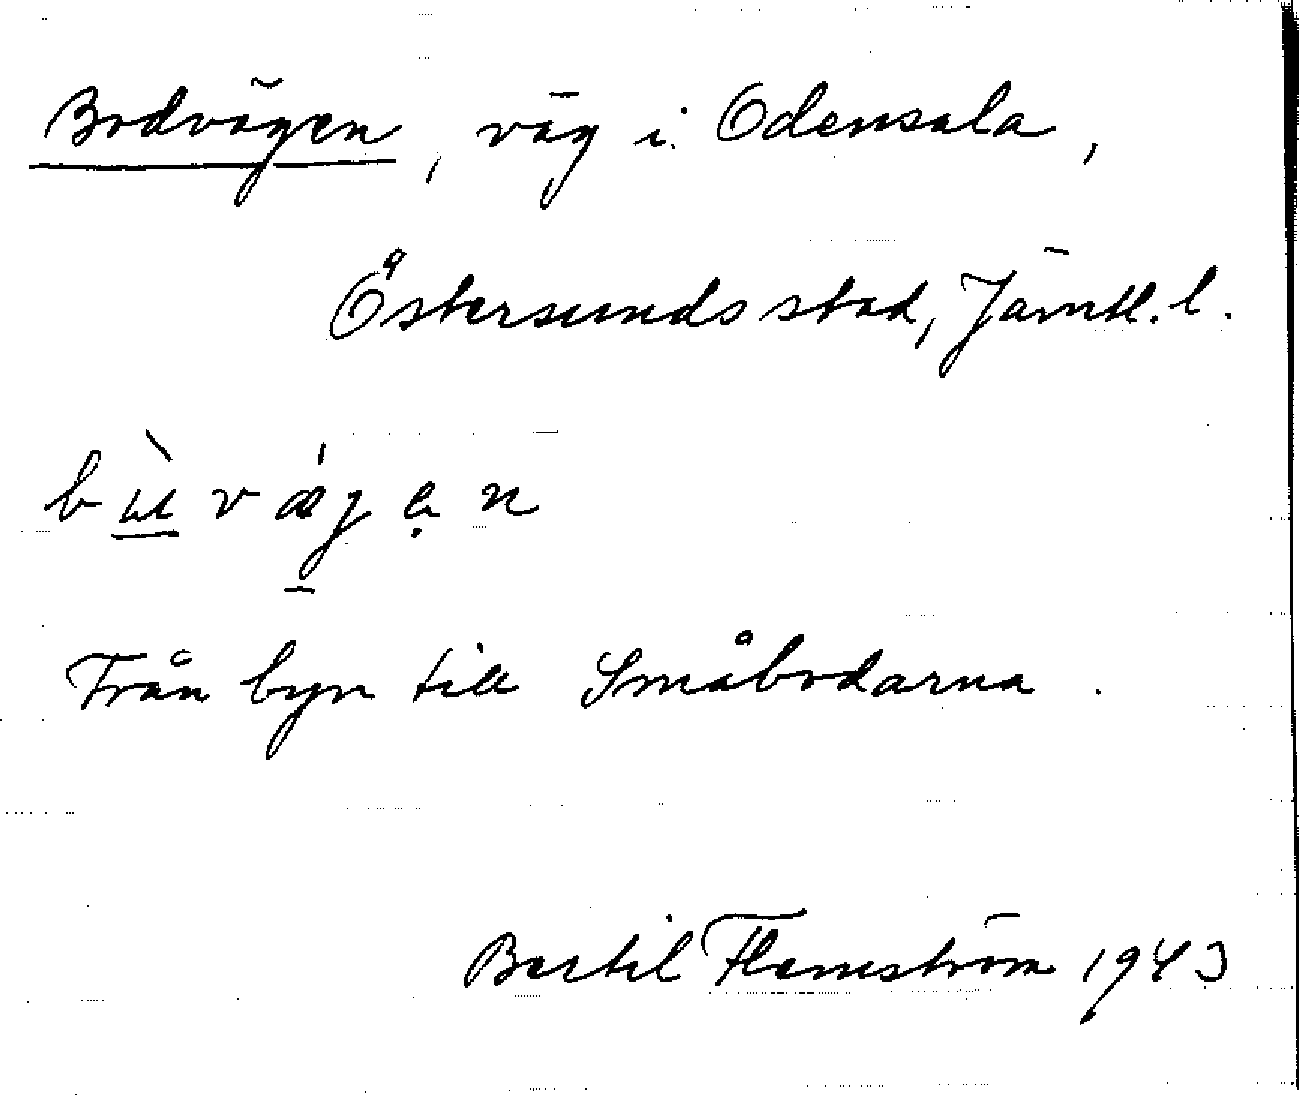 Bodvägen, väg i Odensala,
Östersunds stad, Jämtl. l.
bùvǽgẹn
Från byn till Småbodarna.
Bertil Flemström 1943